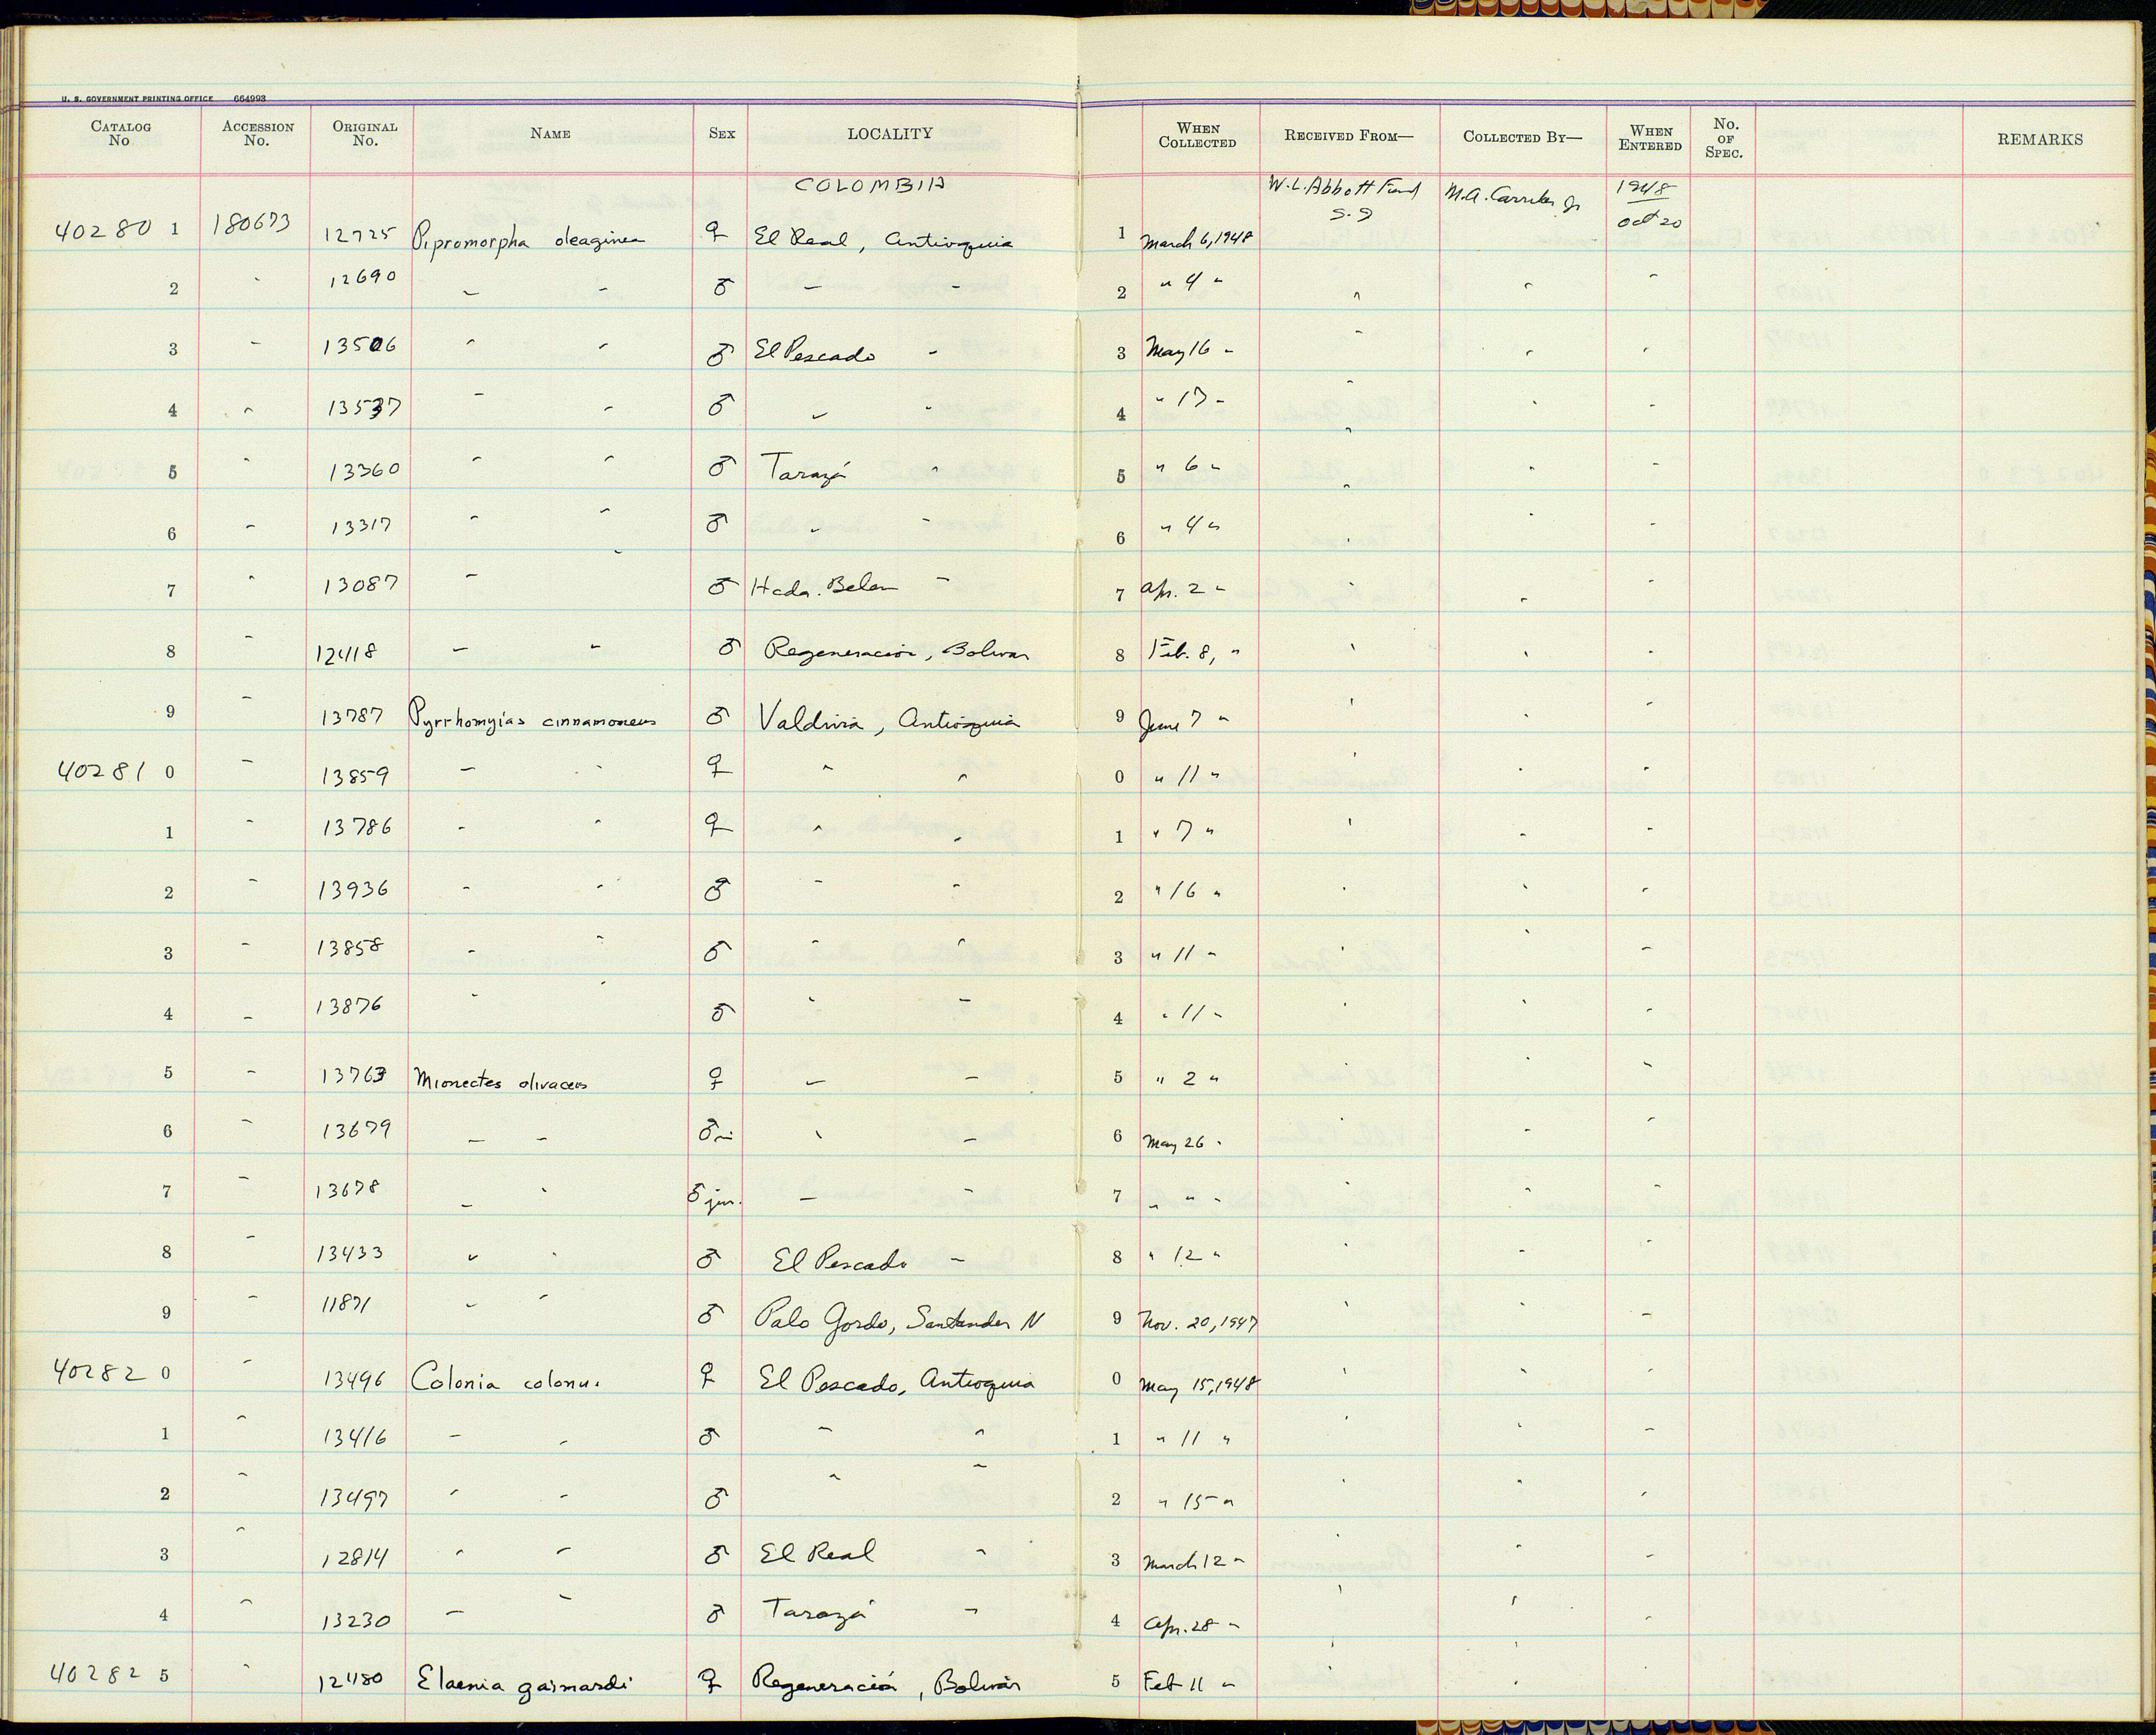 U. S. GOVERNMENT PRINTING OFFICE 664993
CATALOG No ACCESSION No. ORIGINAL No. NAME SEX LOCALITY WHEN COLLECTED RECEIVED FROM— COLLECTED BY— WHEN ENTERED No. OF SPEC. REMARKS
COLOMBIA W. L. Abbott Fund M.A. Carriker Jr 1948
40280 1 180673 12725 Pipromorpha oleaginea ♀ El Real, Antioquia 1 March 6, 1948 Oct 20
2 " 12690 " " ♂ " " 2 " 4 " " " "
3 " 13506 " " ♂ El Pescado " 3 May 16 " " " "
4 " 13537 " " ♂ " " 4 " 17 " " " "
5 " 13360 " " ♂ Tarazá " 5 " 6 " " " "
6 " 13317 " " ♂ " " 6 " 4 " " " "
7 " 13087 " " ♂ Hcda. Belen " 7 Apr. 2 " " " "
8 " 12418 " " ♂ Regeneración, Bolivar 8 Feb. 8, " " " "
9 " 13787 Pyrrhomyias cinnamomeus ♂ Valdivia, Antioquia 9 June 7 " " " "
40281 0 " 13859 " " ♀ " " 0 " 11 " " " "
1 " 13786 " " ♀ " " 1 " 7 " " " "
2 " 13936 " " ♂ " " 2 " 16 " " " "
3 " 13858 " " ♂ " " 3 " 11 " " " "
4 " 13876 " " ♂ " " 4 " 11 " " " "
5 " 13763 Mionectes olivaceus ♀ " " 5 " 2 " " " "
6 " 13679 " " ♂ " " 6 May 26 " " " "
7 " 13678 " " ♂ juv. " " 7 " " " " " "
8 " 13433 " " ♂ El Pescado " 8 " 12 " " " "
9 " 11871 " " ♂ Palo Gordo, Santander N 9 Nov. 20, 1947 " " "
40282 0 " 13496 Colonia colonus ♀ El Pescado, Antioquia 0 May 15, 1948 " " "
1 " 13416 " " ♂ " " 1 " 11 " " " "
2 " 13497 " " ♂ " " 2 " 15 " " " "
3 " 12814 " " ♂ El Real " 3 March 12 " " " "
4 " 13230 " " ♂ Tarazá " 4 Apr. 28 " " " "
40282 5 " 12480 Elaenia gaimardi ♀ Regeneración, Bolivár 5 Feb 11 " " "